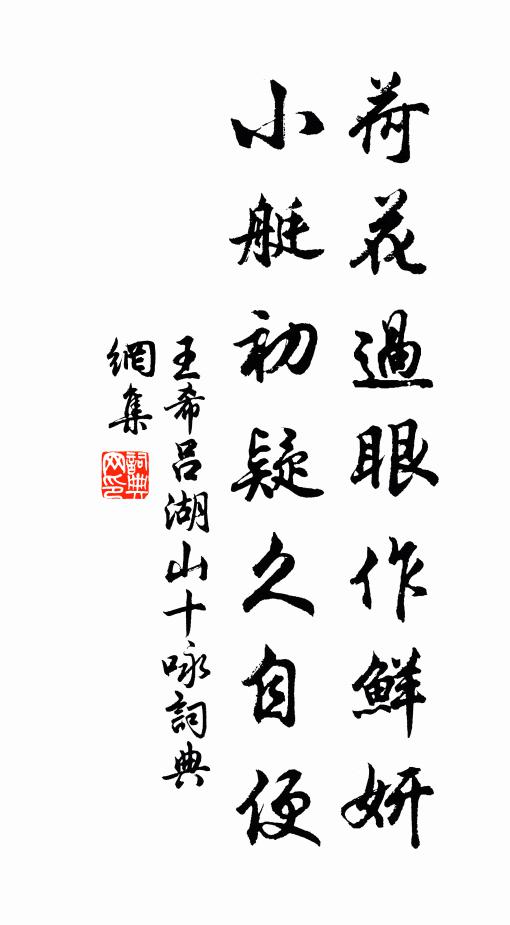 荷花過眼作鮮妍
小艇初疑久自便
王希呂湖山十咏詞典
網集
詞典網印